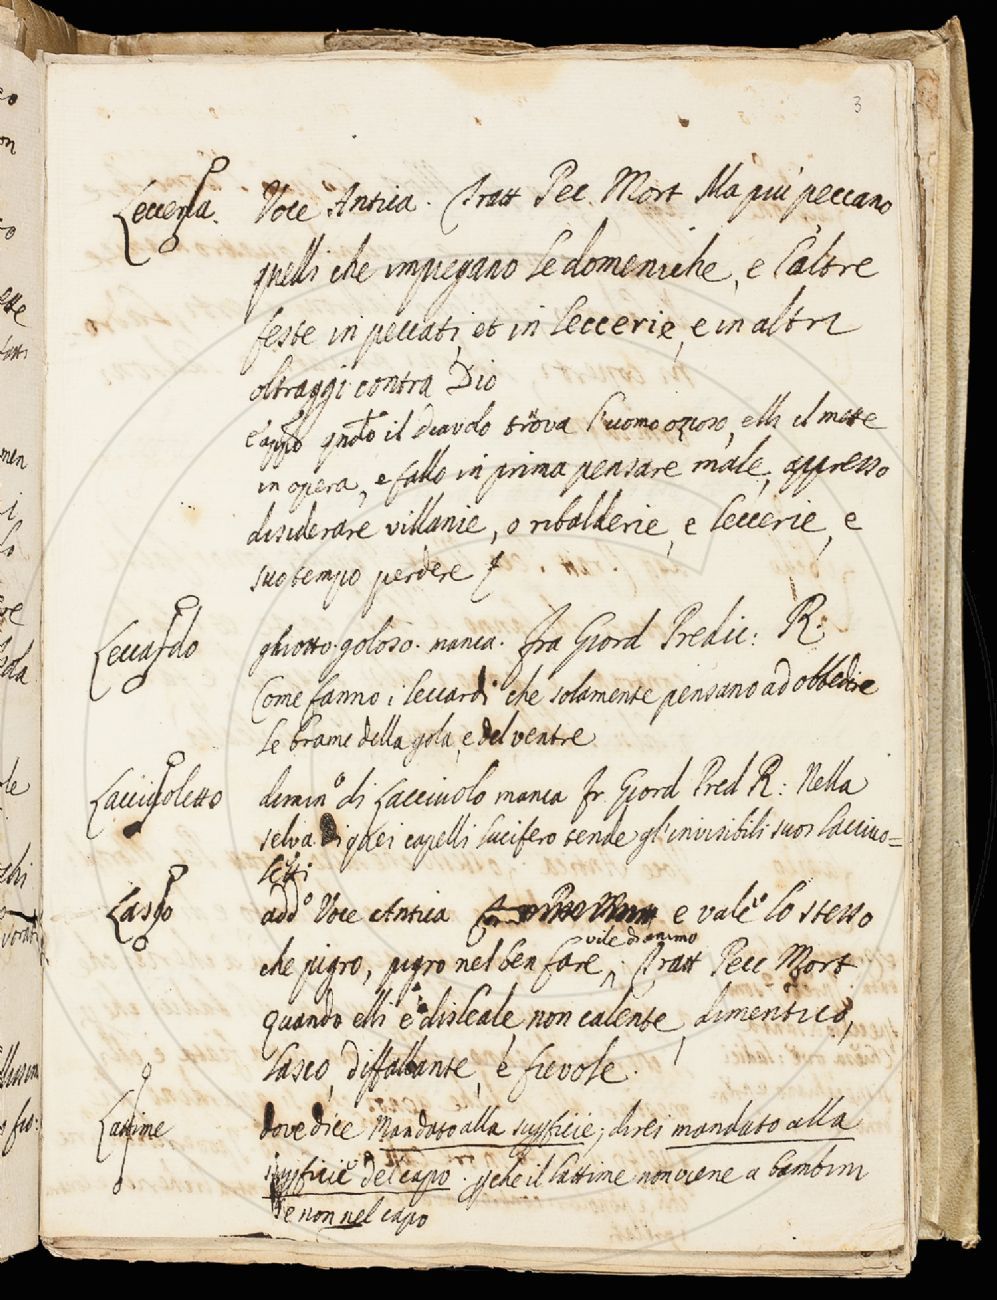 3
Lecceria. Voce Antica. Tratt Pec. Mort Ma più peccano
quelli che impiegano le domeniche, e l'altre
feste in peccati, et in leccerie, e in altri
oltraggi contra Dio
e app.o qndo il diavolo trova l'uomo ozioso, elli il mette
in opera, e fallo in prima pensare male, appresso
disiderare villanie, o ribalderie, e leccerie, e
suo tempo perdere
Leccardo ghiotto. goloso. manca. Fra Giord Predic: R:
Come fanno i leccardi che solamente pensano ad obbedire
le brame della gola, e del ventre
Lacciuoletto dimin.o di Lacciuolo manca Fr Giord Pred R: Nella
selva di quei capelli lucifero tende gl'invisibili suoi lacciuo=
letti
Lasco add.o Voce Antica e vale lo stesso
che pigro, pigro nel ben fare, vile d'animo. Tratt Pecc Mort
quando elli è disleale non calente, dimentico,
lasco, diffaltante, e fievole.
Lattime dove dice Mandato alla supficie, direi mandato alla
supficie del capo. pche il lattime non viene a bambini
se non nel capo